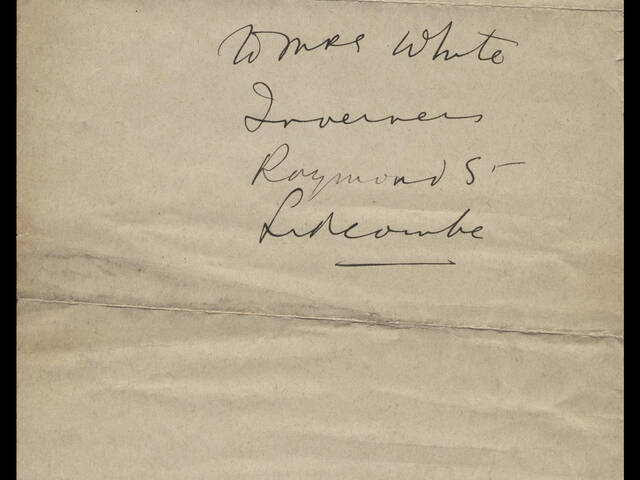 To Mrs White
Inverness
Raymond St
Lidcombe